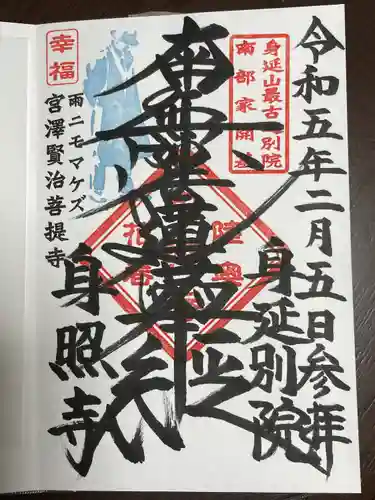 令和五年二月五日参拝
身延山最古の別院
南部家開基
身延別院
南無妙法蓮華経
陸奥
花巻
幸福
雨ニモマケズ
宮澤賢治菩提寺
身照寺